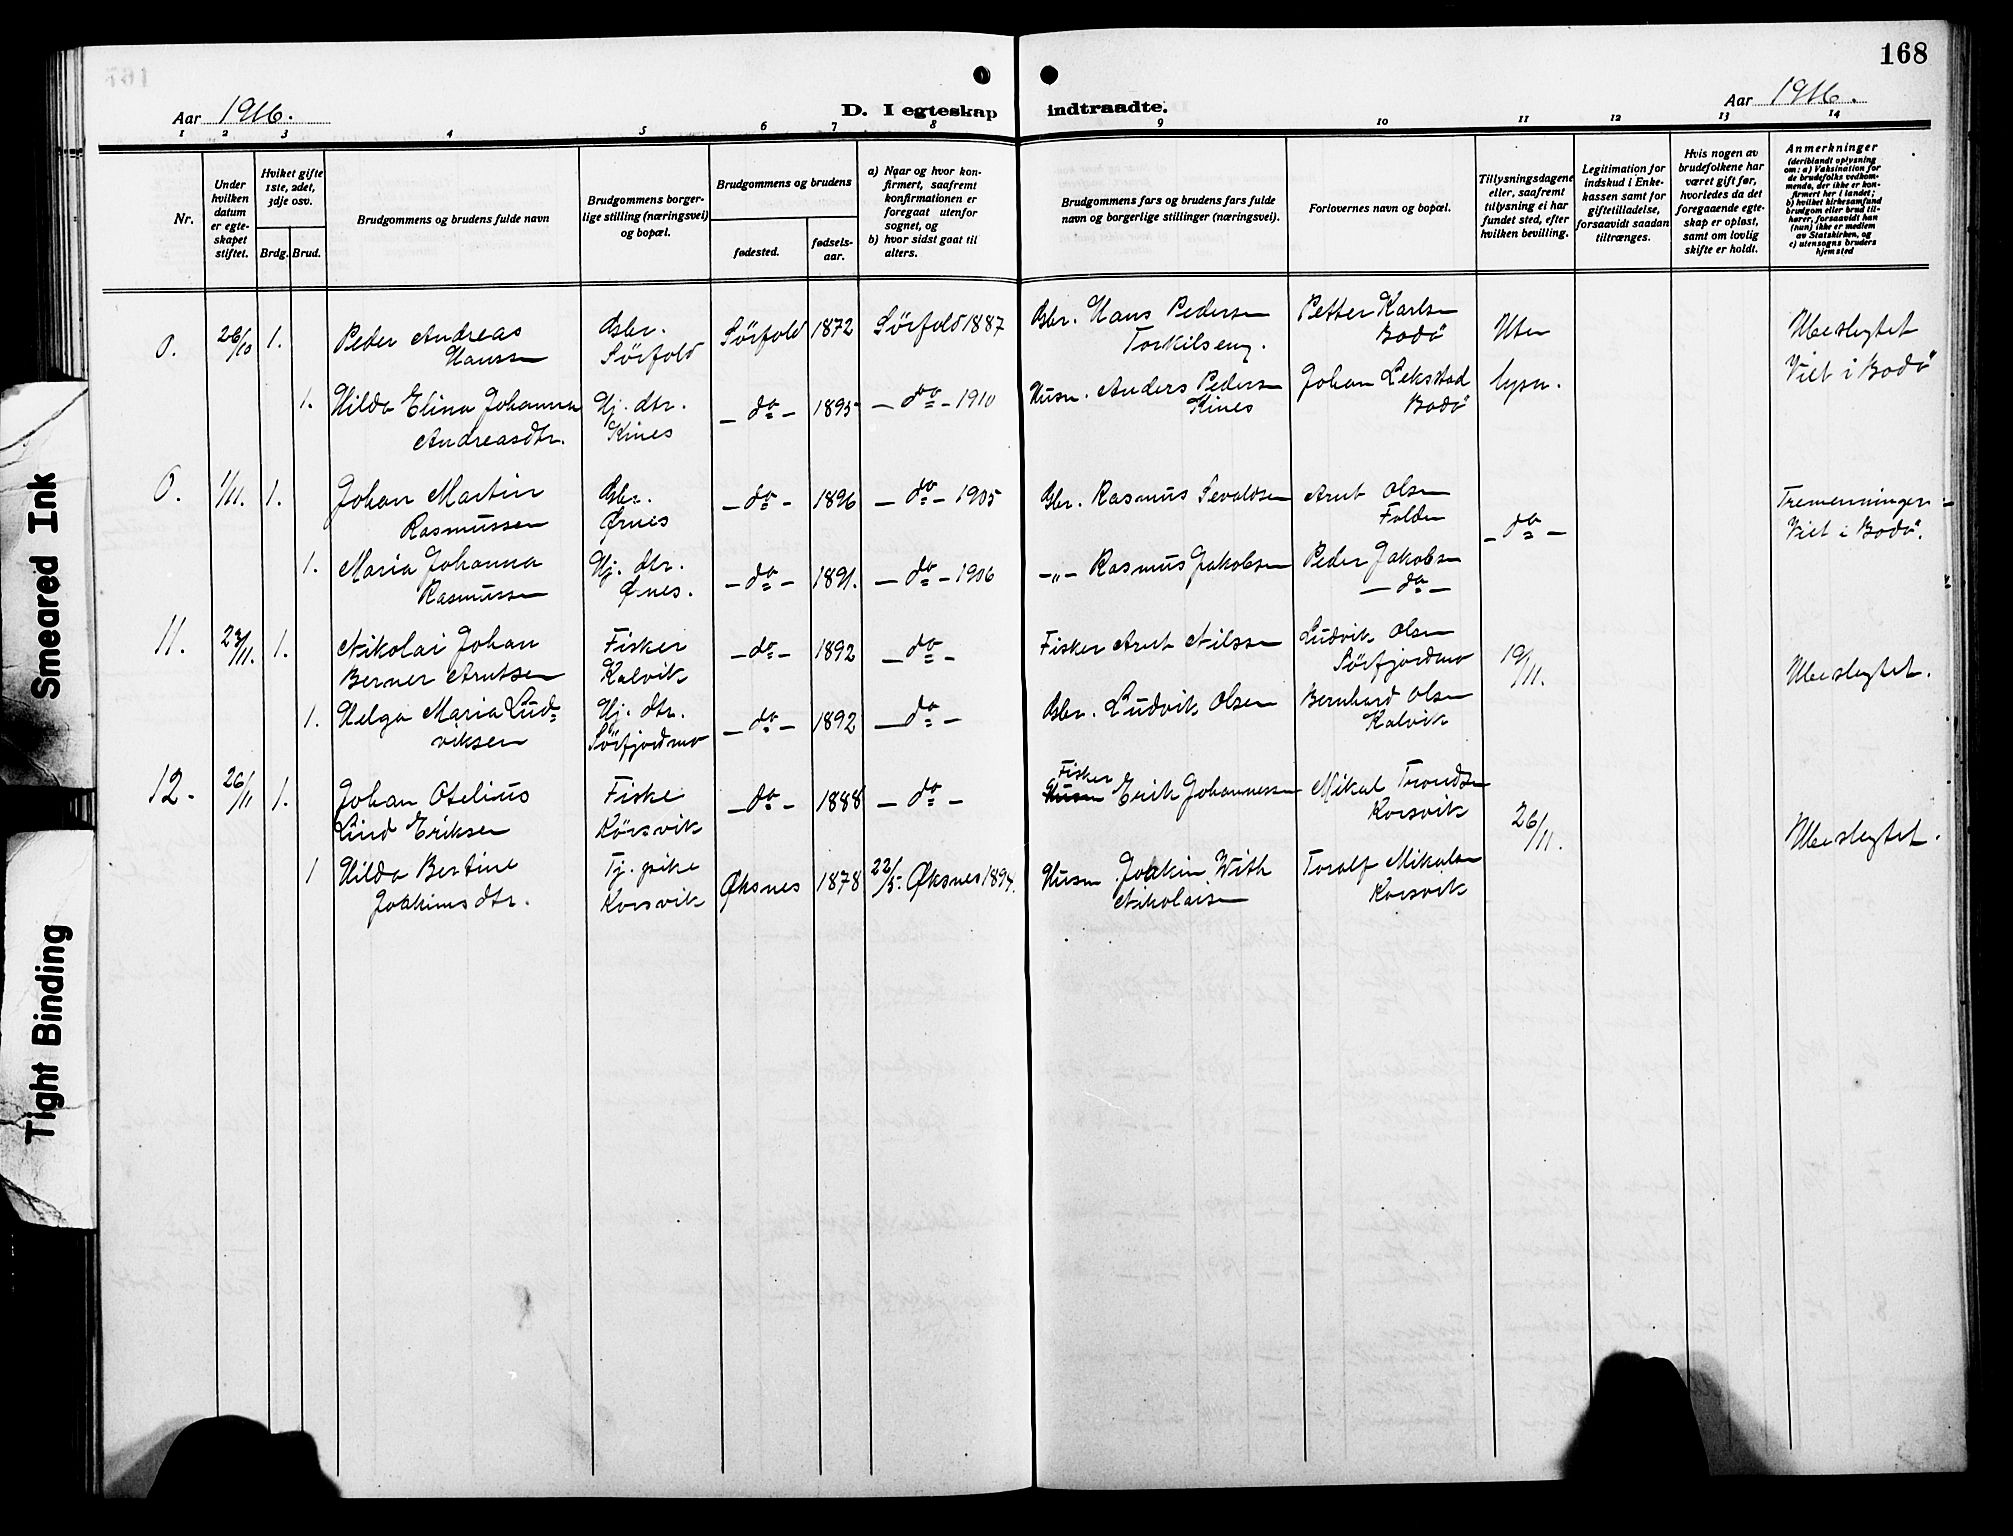 168
Aar 1916.
D. I egteskap indtraadte.
Aar 1916.
1 2 3 4 5 6 7 8 9 10 11 12 13 14
Nr.
Under hvilken datum er egteskapet stiftet.
Hviket gifte 1ste, 2det, 3dje osv.
Brdg. Brud.
Brudgommens og brudens fulde navn
Brudgommens borgerlige stilling (næringsvei) og bopæl.
Brudgommens og brudens
fødested.
fødselsaar.
a) Naar og hvor konfirmert, saafremt konfirmationen er foregaaet utenfor sognet, og
b) hvor sidst gaat til alters.
Brudgommens fars og brudens fars fulde navn og borgerlige stillinger (næringsvei).
Forlovernes navn og bopæl.
Tillysningsdagene eller, saafremt tillysning ei har fundet sted, efter hvilken bevilling.
Legitimation for indskud i Enkekassen samt for giftetilladelse, forsaavidt saadan tiltrænges.
Hvis nogen av brudefolkene har været gift før, hvorledes da det foregaaende egteskap er opløst, samt om lovlig skifte er holdt.
Anmerkninger (deriblandt oplysning om: a) Vaksination for de brudefolks vedkommende, der ikke er konfirmert her i landet; b) hvilket kirkesamfund brudgom eller brud tilhører, forsaavidt han (hun) ikke er medlem av Statskirken, og c) utensogns bruders hjemsted
0. 26/10 1. Peder Andreas Gbr. Sörfold 1872 Sörfold 1887 Gbr. Hans Pedersen Petter Karlsen Uten Ubeslegtet
Hanssen Sörfold Torkilseng. Bodö Viet i Bodö
1. Hilda Elina Johanna Hj. dtr. -do- 1895 -do- 1910 Husm. Anders Pedersen Johan Lekstad lysn.
Andreasdtr. Kines Kines Bodö
0. 1/11. 1. Johan Martin Gbr. -do- 1896 -do- 1905 Gbr. Rasmus Sevaldsen Arnt Olsen -do- Tremenninger
Rasmussen Ørnes Folden Viet i Bodö.
1. Maria Johanna Hj. dtr. -do- 1891. -do- 1906 -"- Rasmus Jakobsen Peder Jakobsen
Rasmussen Ørnes. -do-
11. 23/11. 1. Nikolai Johan Fisker -do- 1892 -do- Fisker Arnt Nilssen Ludvik Olsen 19/11. Ubeslegtet.
Berner Arntsen Kalvik Sörfjordmo
1. Helga Maria Lud= Hj. dtr. -do- 1892 -do- Gbr. Ludvik Olsen Bernhard Olsen
viksen Sörfjordmo Kalvik
12. 26/11 1. Johan Otelius Fiske -do- 1888 -do- Fisker Husm Erik Johannessen Mikal Trondsen 26/11. Ubeslegtet.
Lind Eriksen Körsvik Korsvik
1 Hilda Bertine Tj. pike Øksnes 1878 22/5. Øksnes 1894. Husm Joakim With Toralf Mikalsen
Joakimsdtr. Korsvik Nikolaisen Korsvik
Smeared Ink
Tight Binding